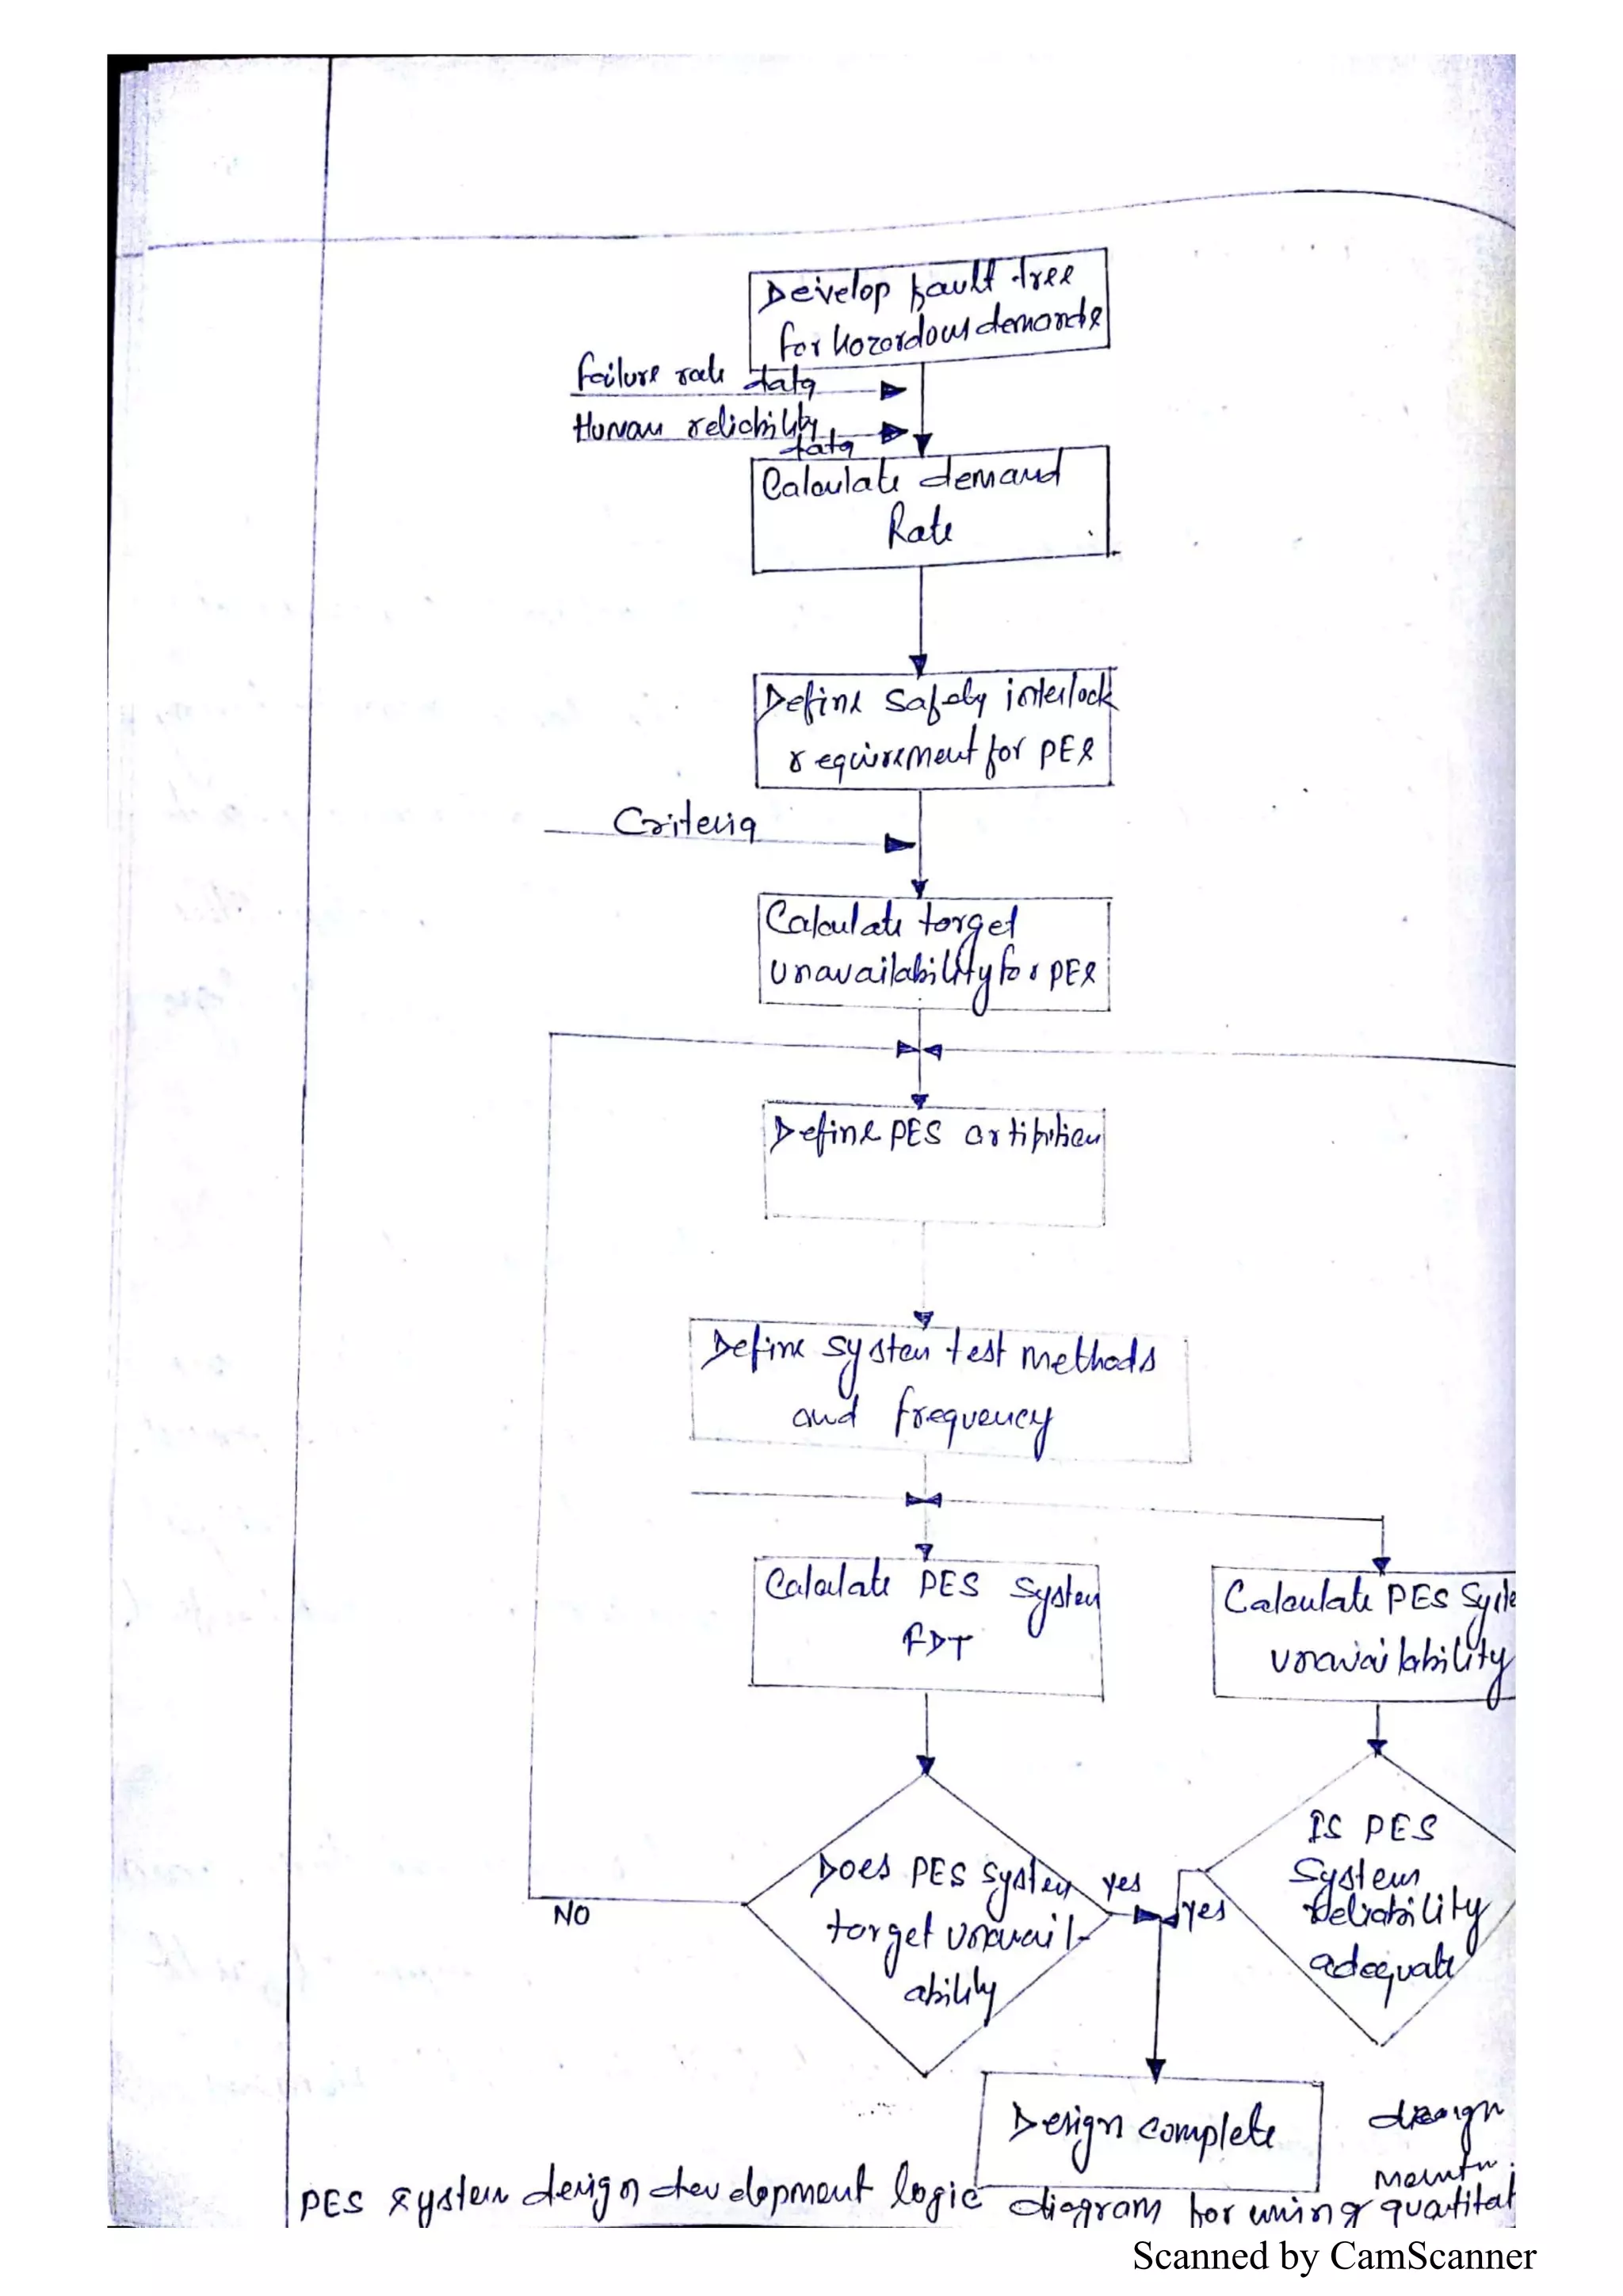 Develop fault tree
for hazardous demands
Failure rate data
Human reliability
data
Calculate demand
Rate
Define Safety interlock
requirement for PES
Criteria
Calculate target
unavailability for PES
Define PES
Define system test methods
and frequency
Calculate PES System
FDT
Calculate PES Syste
unavailability
Does PES System
target unavail-
ability
yes
NO
yes
IS PES
System
Reliability
adequate
Design complete
design
PES System design development logic diagram for using quantitat
Scanned by CamScanner